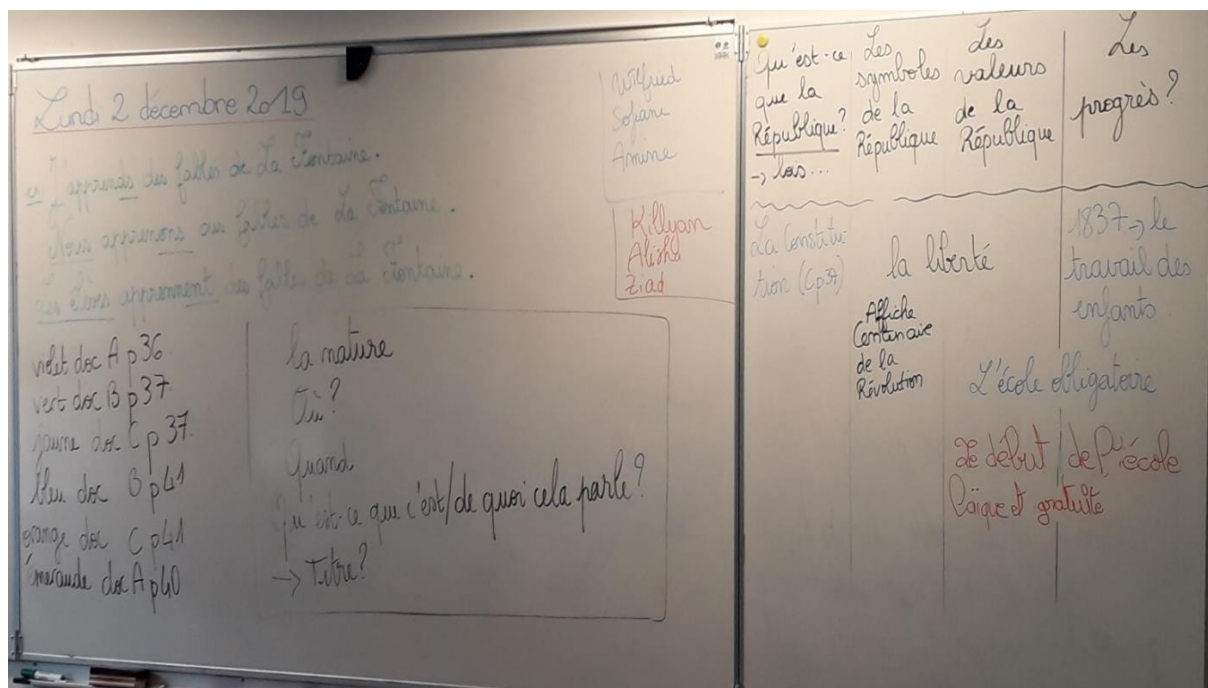 Lundi 2 décembre 2019
J'apprends des fables de La Fontaine.
Nous apprenons des fables de La Fontaine.
Les élèves apprennent des fables de La Fontaine.
Wilfried
Sofiane
Amine
Killyan
Alisha
Ziad
violet doc A p 36
vert doc B p 37
jaune doc C p 37.
bleu doc B p 41
orange doc C p 41
émeraude doc A p 40
la nature
Où ?
Quand
Qu'est-ce que c'est/de quoi cela parle ?
→ Titre ?
Qu'est-ce
que la
République ?
→ lois...
Les
symboles
de la
République
Les
valeurs
de la
République
Les
progrès ?
La Constitu-
tion (Cp37)
la liberté
1837 → le
travail des
enfants
Affiche
Centenaire
de la
Révolution
L'école obligatoire
Le début de l'école
laïque et gratuite